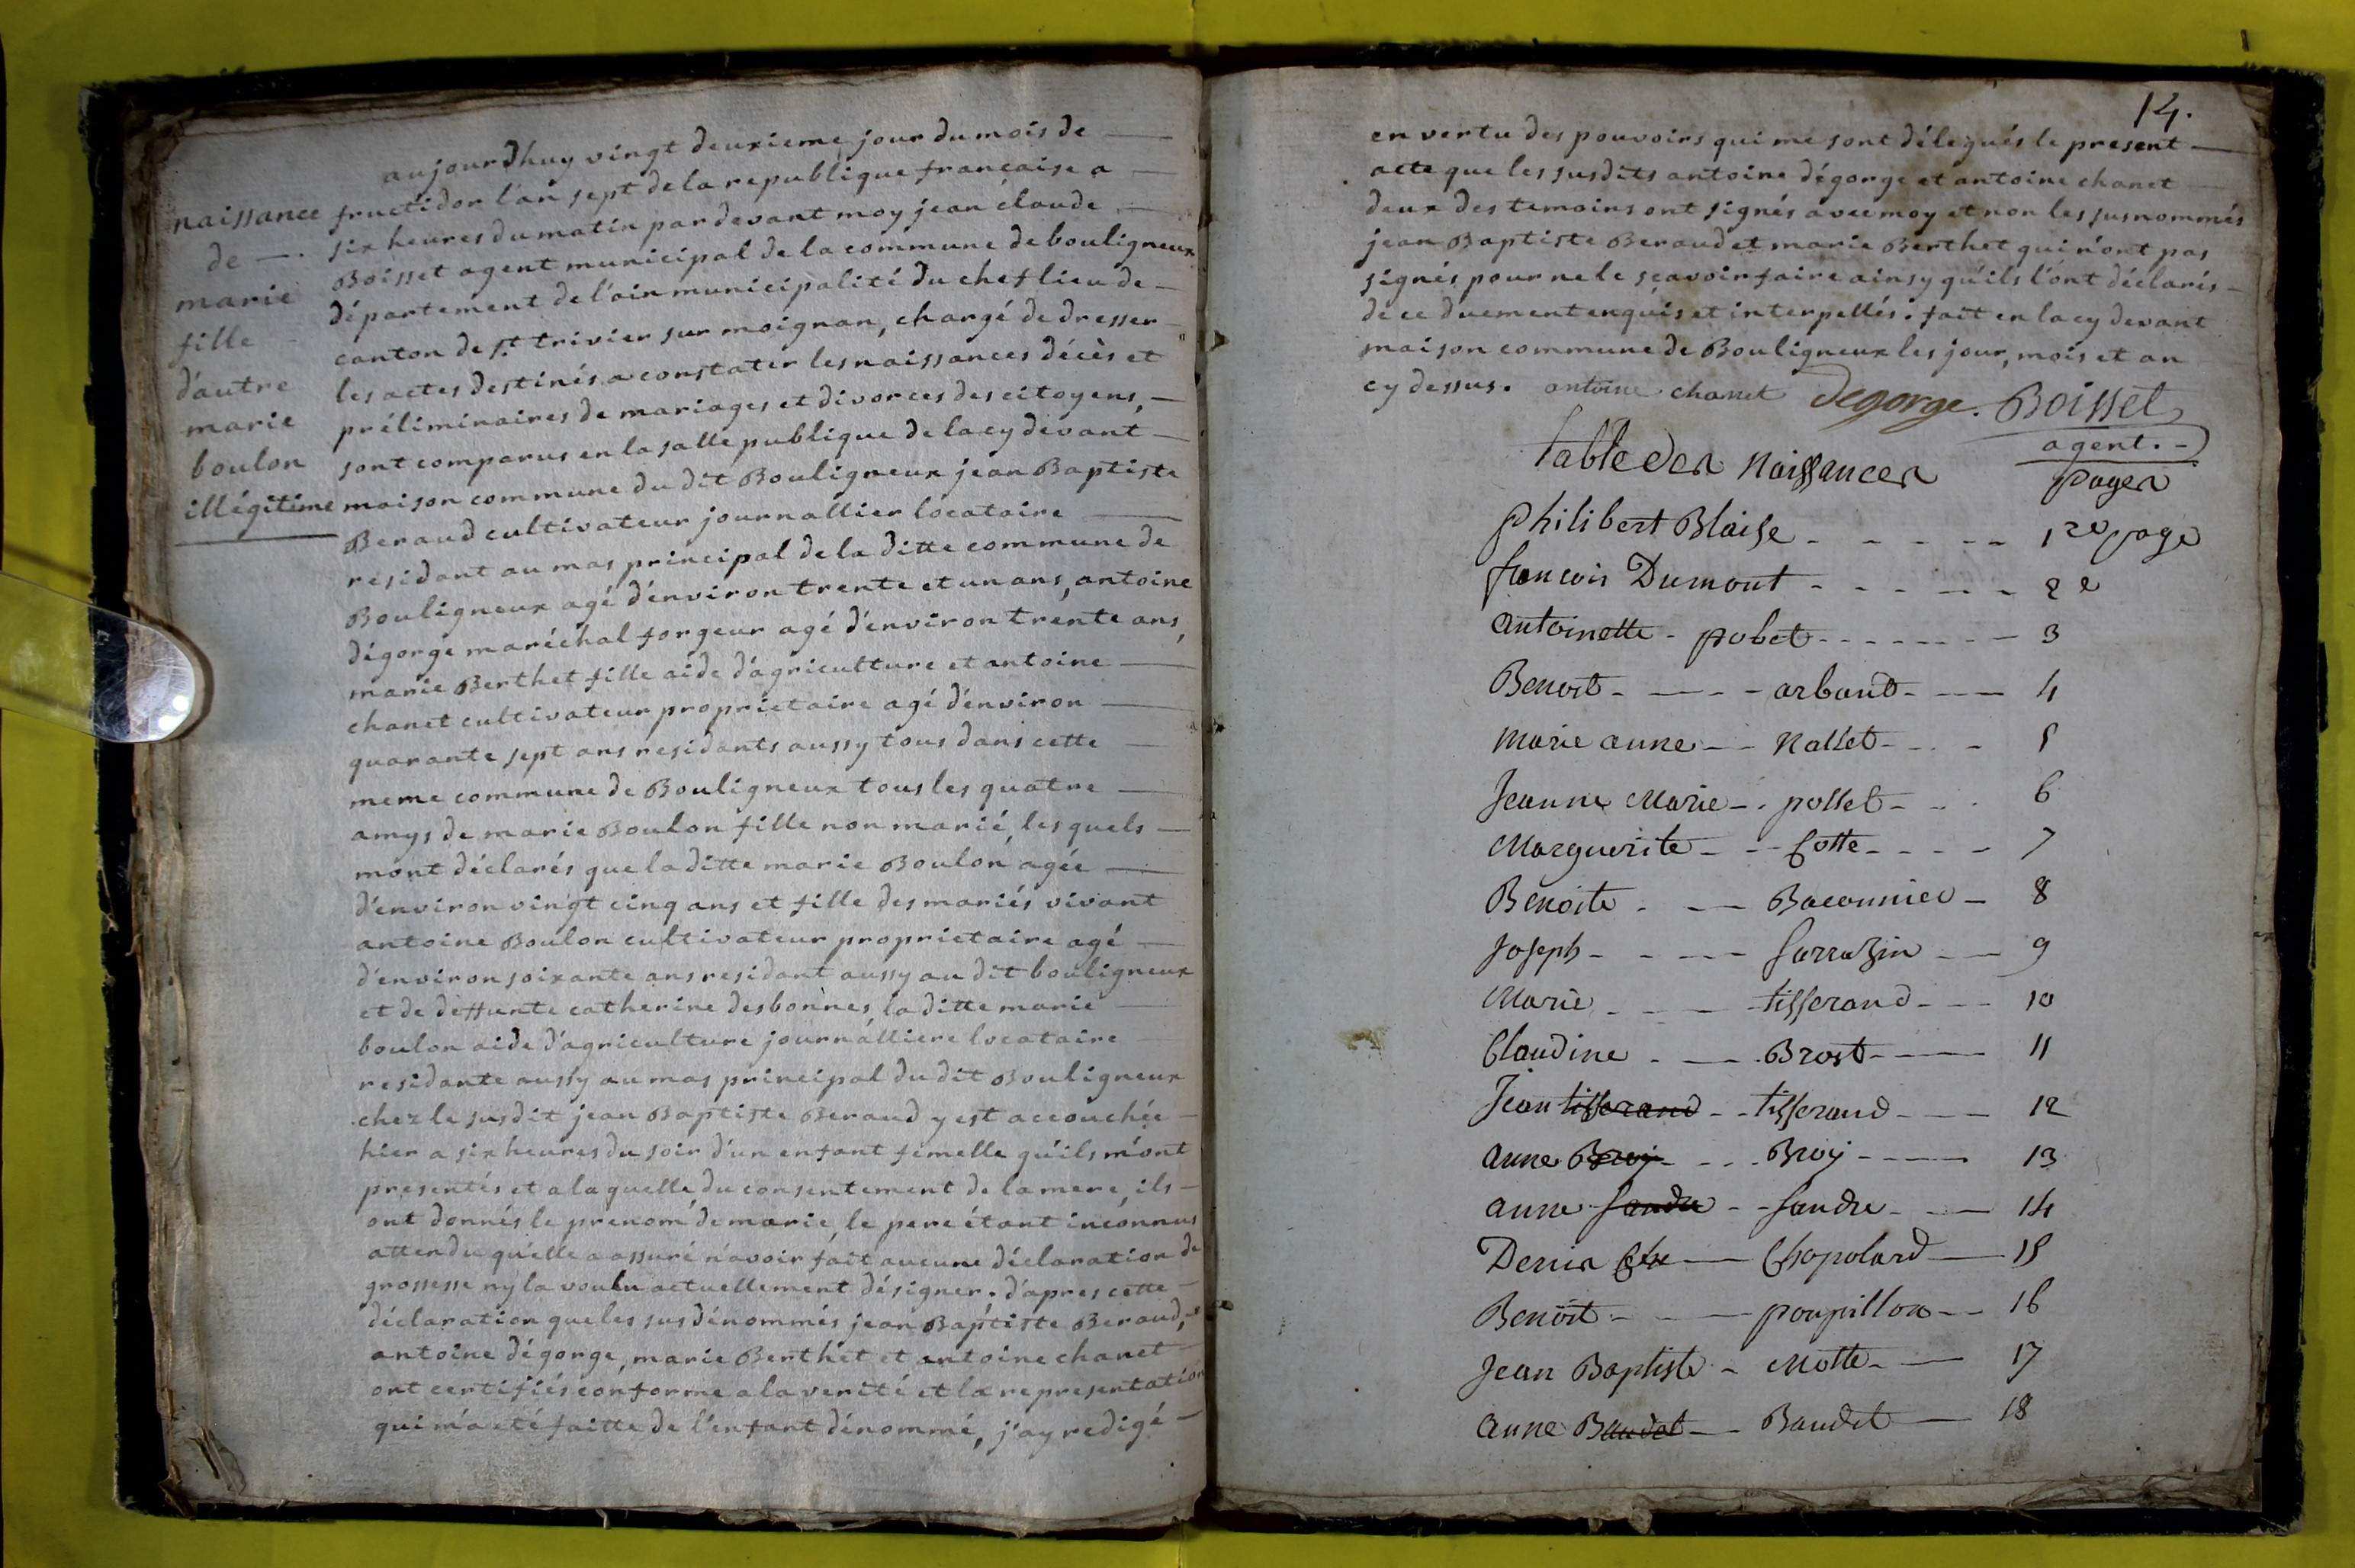 naissance
de —.
marie
fille
d'autre
marie
boulon
illégitime
aujourdhuy vingt deuxieme jour du mois de
fructidor l'an sept de la republique francaise a
six heures du matin par devant moy jean claude
Boisset agent municipal de la commune de bouligneux
département de l'ain municipalité du chef lieu de
canton de st trivier sur moignan, chargé de dresser
les actes destinés a constater les naissances décès et
préliminaires de mariages et divorces des citoyens,
sont comparus en la salle publique de la cy devant
maison commune du dit Bouligneux jean Baptiste
Beraud cultivateur journallier locataire
residant au mas principal de la ditte commune de
Bouligneux agé d'environ trente et un ans, antoine
dégorge maréchal forgeur agé d'environ trente ans,
marie Berthet fille aide d'agriculture et antoine
chanet cultivateur proprietaire agé d'environ
quarante sept ans residants aussy tous dans cette
meme commune de Bouligneux tous les quatre
amys de marie Boulon fille non marié, les quels
m'ont déclarés que la ditte marie Boulon agée
d'environ vingt cinq ans et fille des mariés vivant
antoine Boulon cultivateur proprietaire agé
d'environ soixante ans residant aussy au dit bouligneux
et de deffunte catherine desbonnes, la ditte marie
boulon aide d'agriculture journalliere locataire
residante aussy au mas principal du dit Bouligneux
chez le susdit jean Baptiste Beraud y est accouchée
hier a six heures du soir d'un enfant femelle qu'ils m'ont
presentés et a la quelle, du consentement de la mere, ils
ont donnés le prenom de marie, le pere étant inconnus
attendu qu'elle a assuré n'avoir fait aucune déclaration de
grossesse ny la voulu actuellement désigner. d'apres cette
déclaration que les sus dénommés jean Baptiste Beraud,
antoine dégorge, marie Berthet et antoine chanet
ont certifiés conforme a la verité et la representation
qui m'a eté faitte de l'enfant dénommé, j'ay redigé
14.
en vertu des pouvoirs qui me sont délegués le present
acte que les susdits antoine dégorge et antoine chanet
deux des temoins ont signés avec moy et non les susnommés
jean Baptiste Beraud et marie Berthet qui n'ont pas
signés pour ne le sçavoir faire ainsy qu'ils l'ont déclarés
de ce duement enquis et interpellés. fait en la cy devant
maison commune de Bouligneux les jour, mois et an
cy dessus. antoine chanet Degorge. Boisset
agent.
table des Naissances pages
philibert Blaise - - - - - 1re page
francois Dumont - - - - - 2e
antoinette - pobet - - - - - 3
Benoit - - - - arbant - - - 4
Marie anne - - Nallet - - - 5
Jeanne Marie - . pollet - - . 6
Marguerite - - - Cotte - - - - 7
Benoite - - - Baconnier - 8
Joseph - - - - Sarrazin - - 9
Marie - - - tisserand - - - 10
Claudine - - - Brost - - - 11
Jean tisserand - - tisserand - - - 12
anne Broy - - - Broy - - - 13
anne Sandre - - Sandre - - - 14
Denis Cha - - Chapolard - 15
Benoit - - - poupillon - - 16
Jean Baptiste - Motte - - 17
anne Baudet - - Baudet - 18